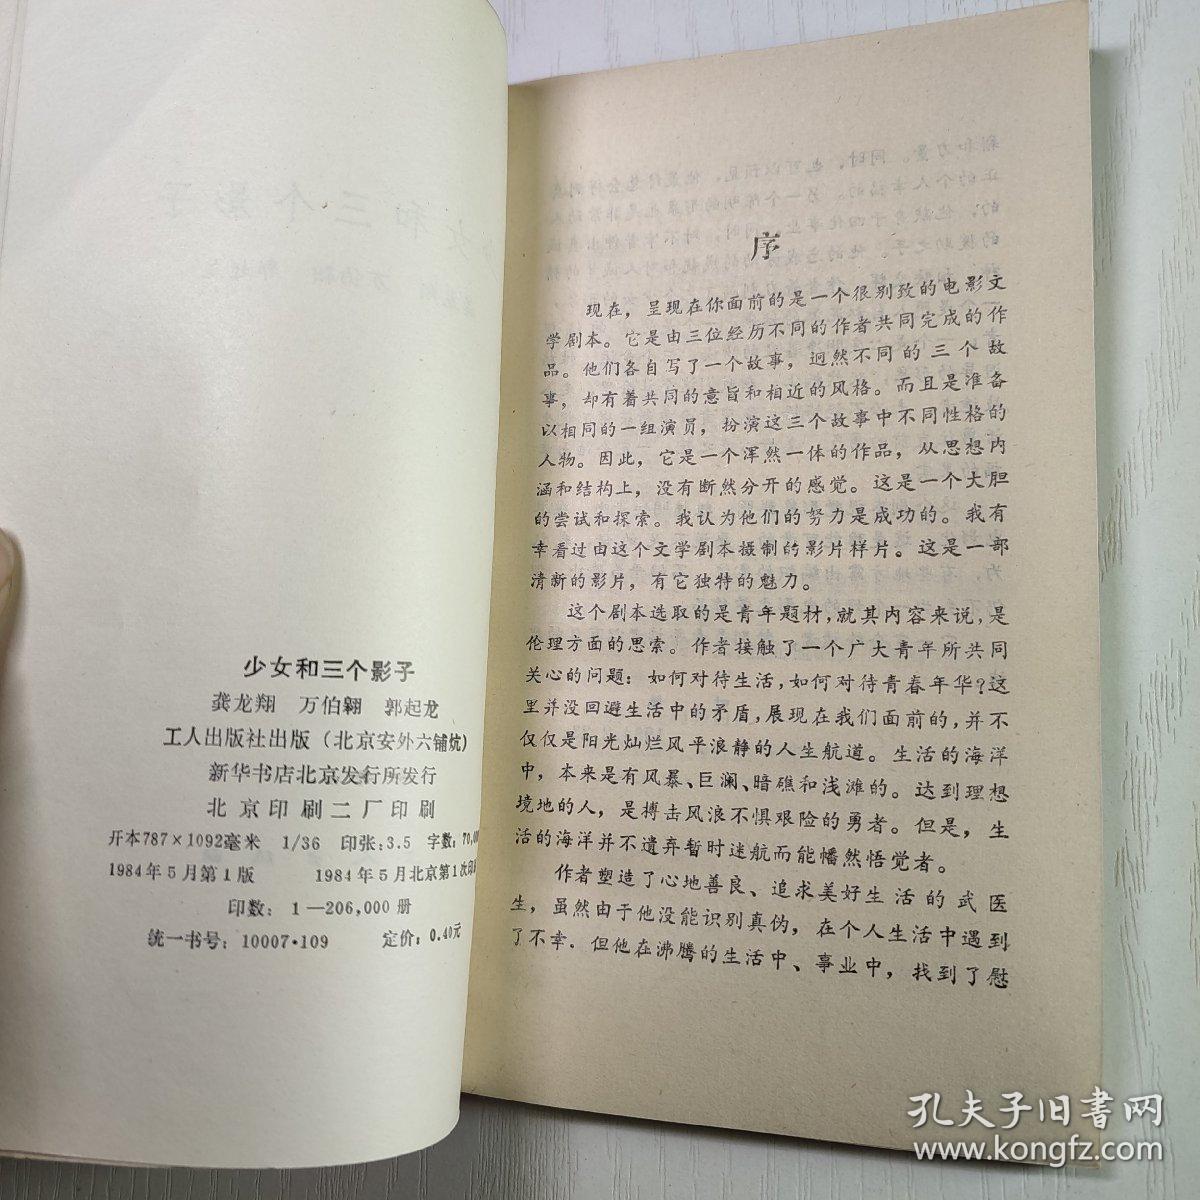 少女和三个影子
龚龙翔 万伯翱 郭起龙
工人出版社出版（北京安外六铺炕）
新华书店北京发行所发行
北京印刷二厂印刷
开本787×1092毫米 1/36 印张：3.5 字数：70,00
1984年5月第1版 1984年5月北京第1次印
印数：1—206,000册
统一书号：10007·109 定价：0.40元
序
现在，呈现在你面前的是一个很别致的电影文
学剧本。它是由三位经历不同的作者共同完成的作
品。他们各自写了一个故事，迥然不同的三个故
事，却有着共同的意旨和相近的风格。而且是准备
以相同的一组演员，扮演这三个故事中不同性格的
人物。因此，它是一个浑然一体的作品，从思想内
涵和结构上，没有断然分开的感觉。这是一个大胆
的尝试和探索。我认为他们的努力是成功的。我有
幸看过由这个文学剧本摄制的影片样片。这是一部
清新的影片，有它独特的魅力。
这个剧本选取的是青年题材，就其内容来说，是
伦理方面的思索。作者接触了一个广大青年所共同
关心的问题：如何对待生活，如何对待青春年华？这
里并没回避生活中的矛盾，展现在我们面前的，并不
仅仅是阳光灿烂风平浪静的人生航道。生活的海洋
中，本来是有风暴、巨澜、暗礁和浅滩的。达到理想
境地的人，是搏击风浪不惧艰险的勇者。但是，生
活的海洋并不遗弃暂时迷航而能幡然悟觉者。
作者塑造了心地善良、追求美好生活的武医
生，虽然由于他没能识别真伪，在个人生活中遇到
了不幸．但他在沸腾的生活中、事业中，找到了慰
孔夫子旧书网
www.kongfz.com